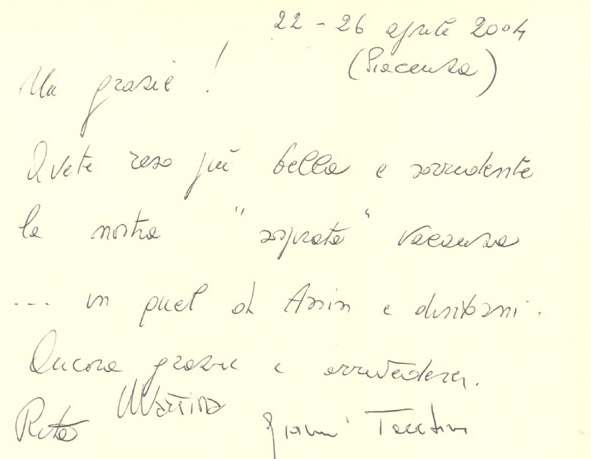 22 - 26 aprile 2004
(Piacenza)
Un grazie!
Avete reso più bella e sorridente
la nostra "sognata" vacanza
... in quel di Assisi e dintorni.
Ancora grazie e arrivederci.
Rita Martina Gianni